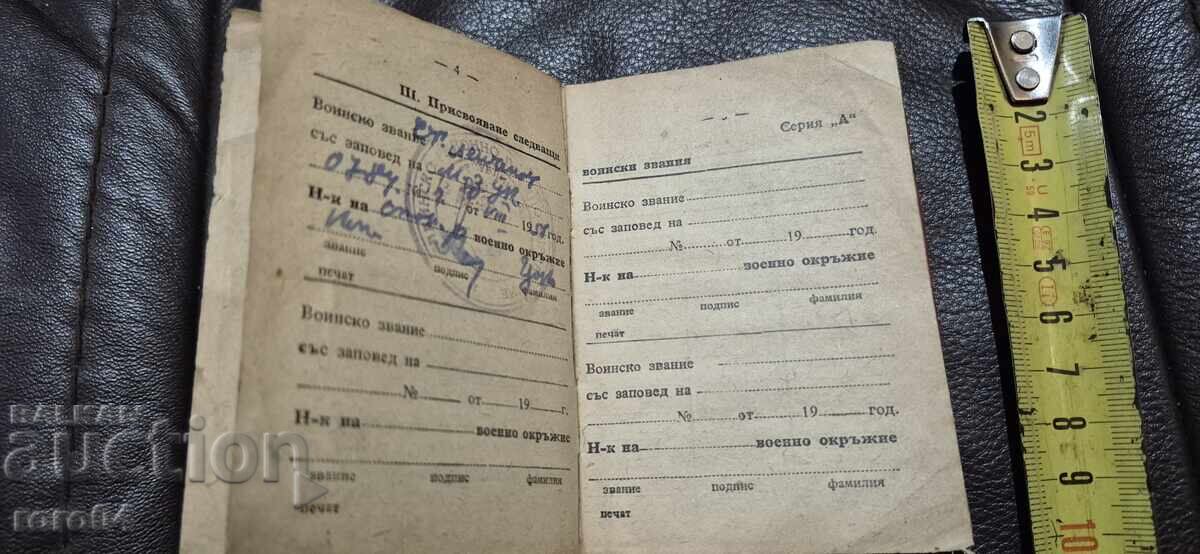 — 4 —
III. Присвояване следващи
Воинско звание
със заповед на
0784
от 1958 год.
Н-к на военно окръжие
звание подпис фамилия
печат
Воинско звание
със заповед на
№ от 19 г.
Н-к на военно окръжие
звание подпис фамилия
печат
Серия „А“
воински звания
Воинско звание
със заповед на
№ от 19 год.
Н-к на военно окръжие
звание подпис фамилия
печат
Воинско звание
със заповед на
№ от 19 год.
Н-к на военно окръжие
звание подпис фамилия
печат
2
5m
3
4
5
6
7
8
9
10
BALKAN
auction
roro84